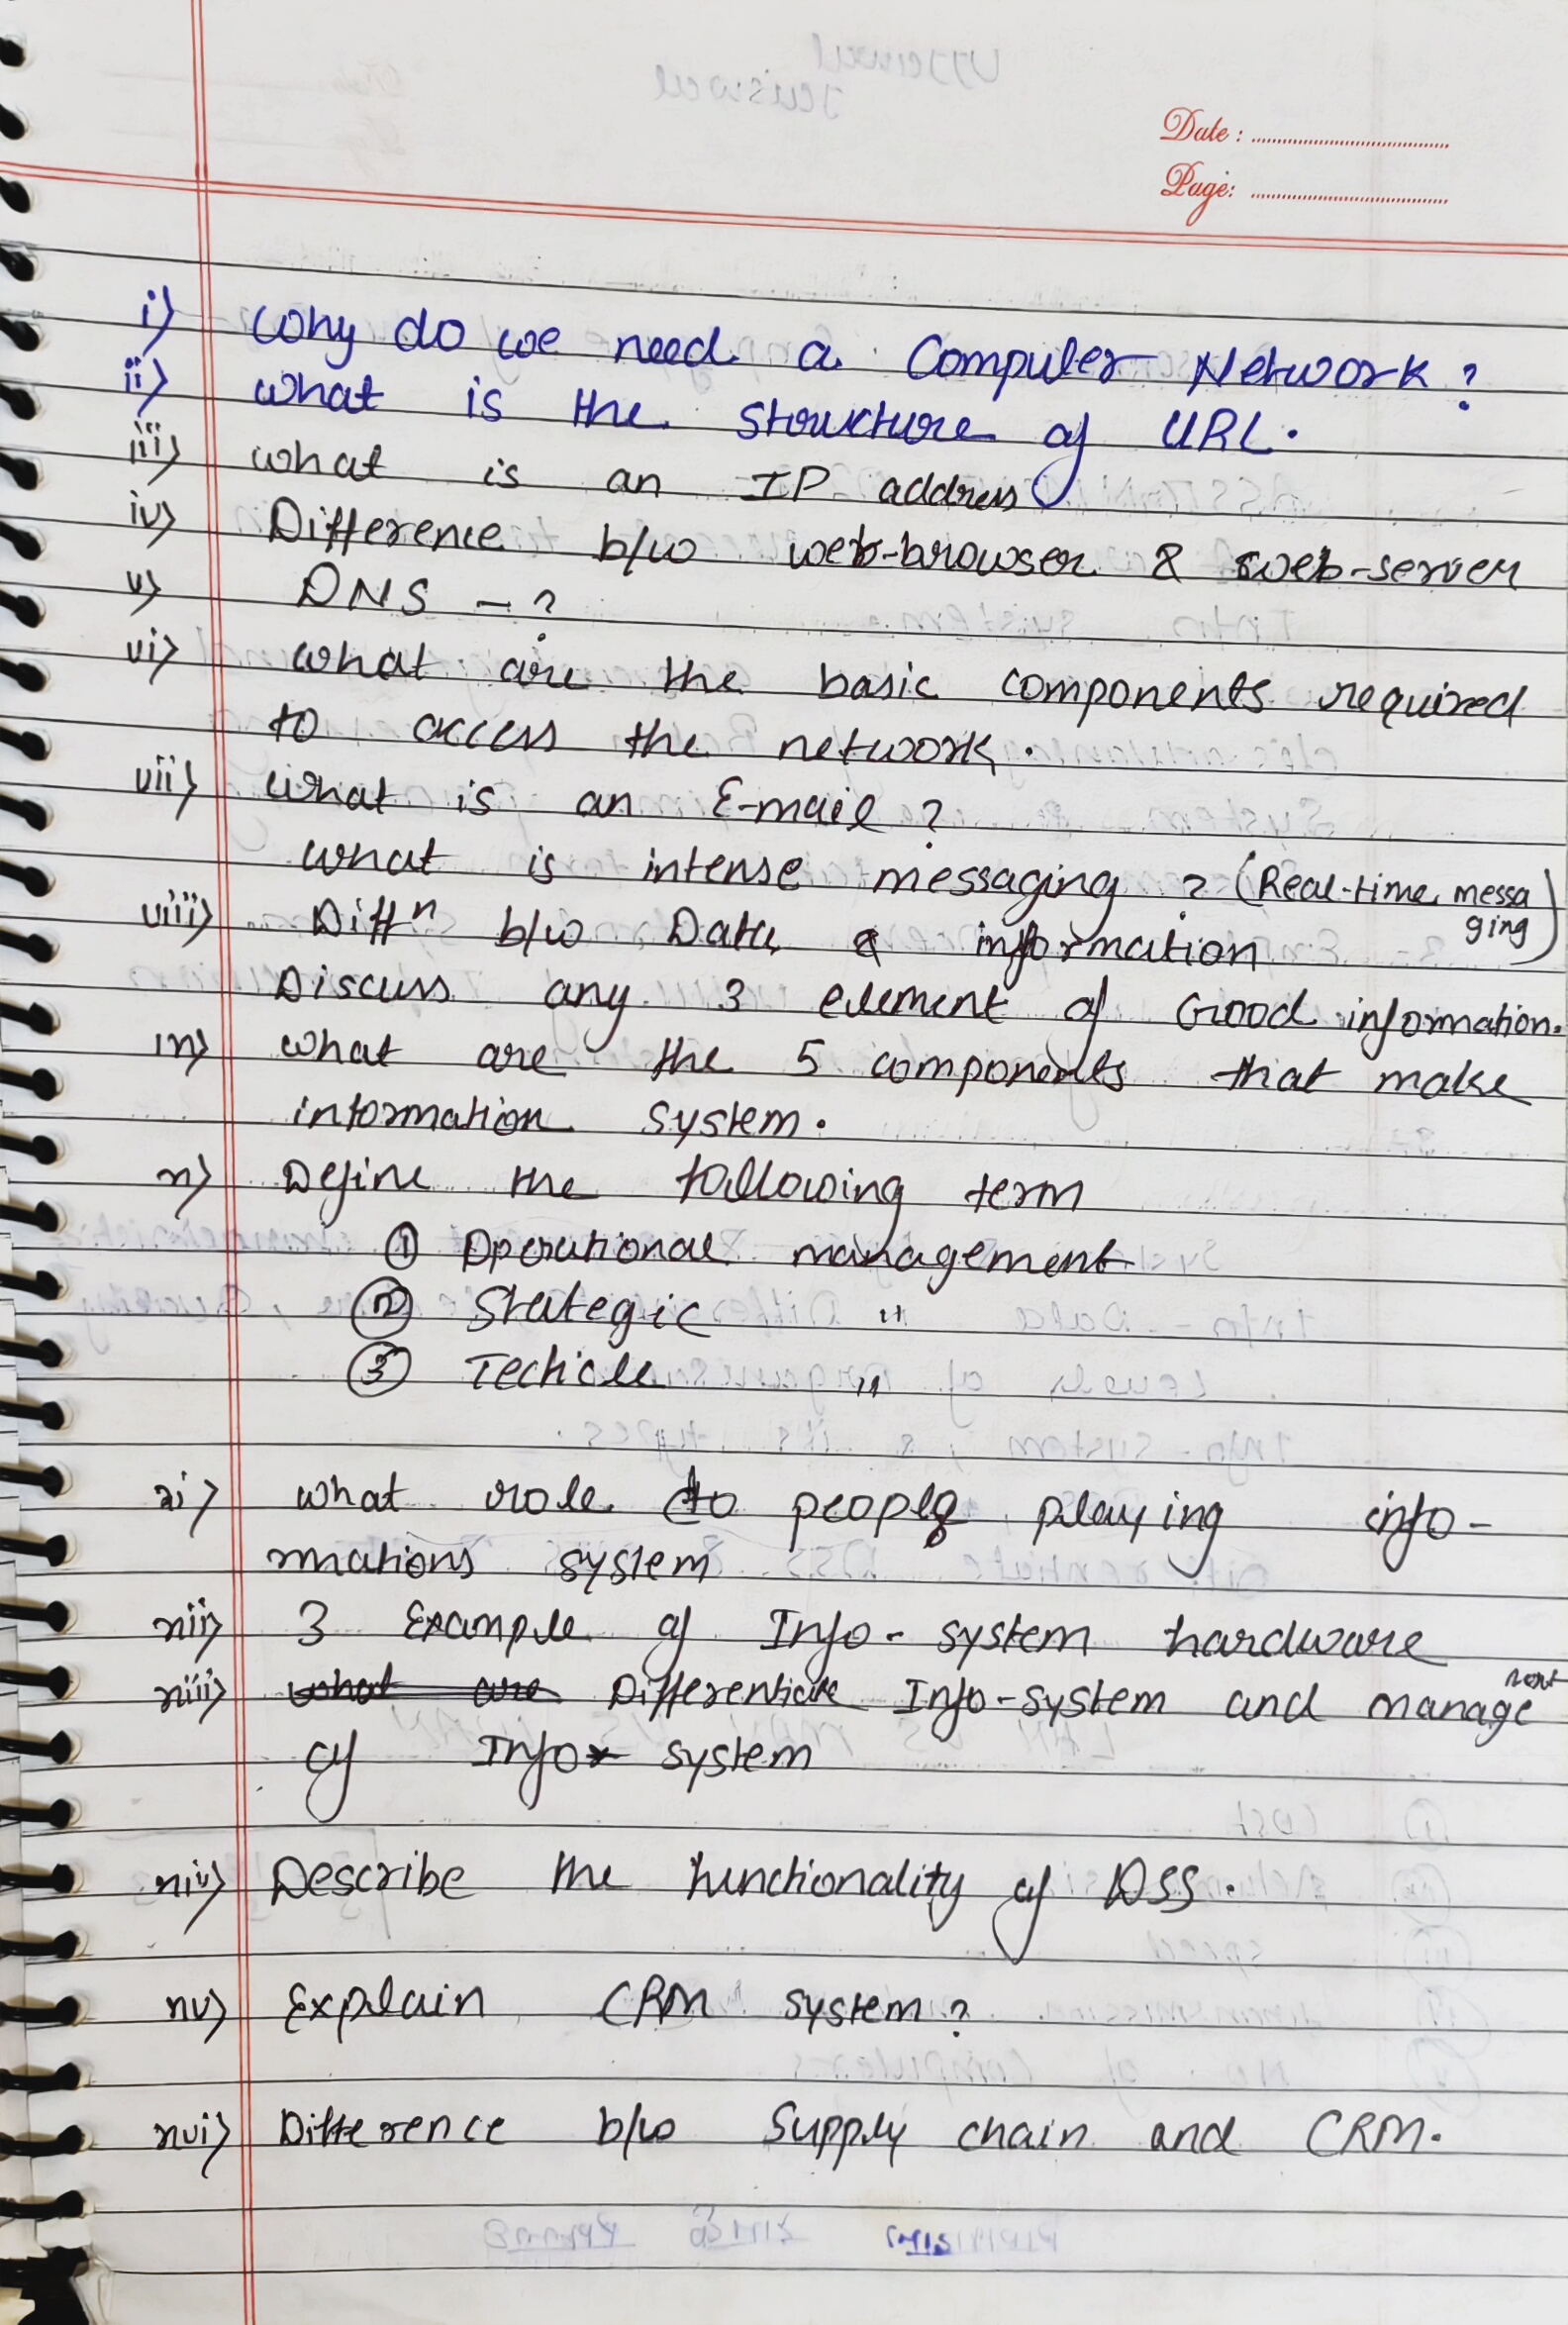 Date :
Page:
i) Why do we need a Computer Network ?
ii) what is the structure of URL.
iii) what is an IP address
iv) Difference b/w web-browser & web-server
v) DNS - ?
vi) what are the basic components required
to access the network.
vii) what is an E-mail ?
what is intense messaging ? (Real-time messa
ging)
viii) Diffn b/w Data & information
Discuss any 3 element of Good information.
ix) what are the 5 components that make
information system.
x) Define the following term
① Operational management
② Stategic "
③ Techicle "
xi) what role do people playing info-
rmations system
xii) 3 Example of Info-system hardware
xiii) what are Differentiate Info-system and manage
ment
of Info system
xiv) Describe the functionality of DSS.
xv) Explain CRM system ?
xvi) Difference b/w Supply chain and CRM.